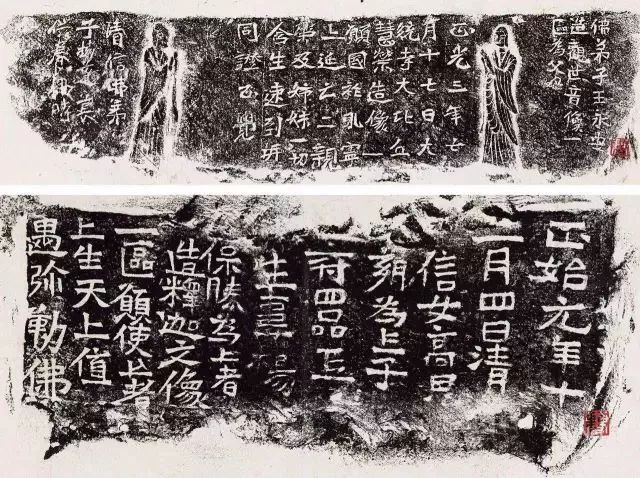 佛弟子王永安
造觀世音像一
區為父母
正光三年七
月十七日大
統寺大比丘
慧榮造像一
願國祚永寧
上延亡二親
弟及姊妹一切
含生速到
同證正覺
清信佛弟
子
正始元年十
一月四日清
信女高
為亡子
符四品
生尋陽
保勝為上者
造釋迦文像
一區願使亡者
上生天上值
遇弥勒佛